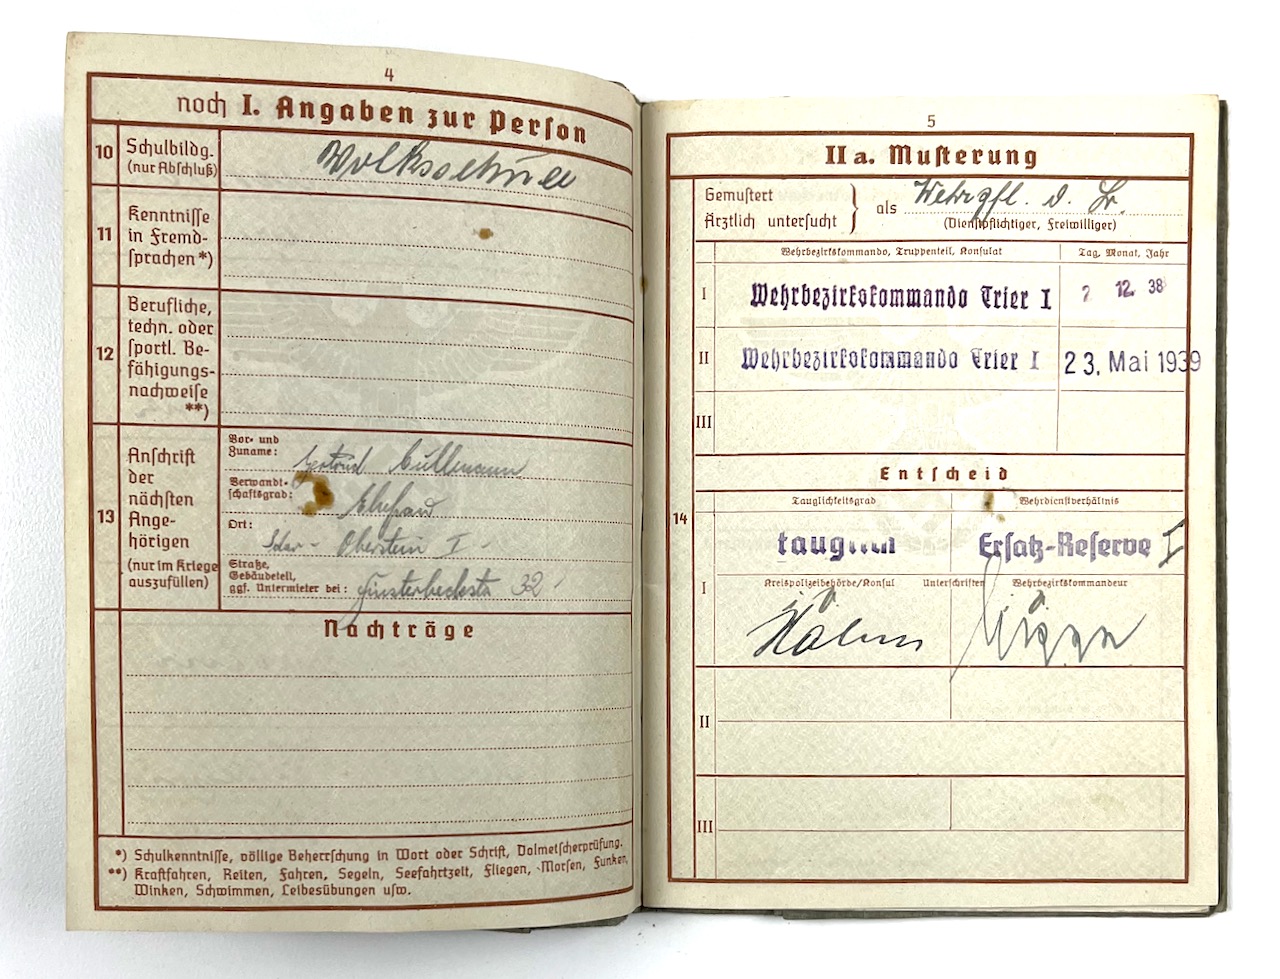 4
noch I. Angaben zur Person
10 Schulbildg.
(nur Abschluß)
Volksschule
11 Kenntnisse
in Fremd-
sprachen*)
12 Berufliche,
techn. oder
sportl. Be-
fähigungs-
nachweise
**)
13 Anschrift
der
nächsten
Ange-
hörigen
(nur im Kriege
auszufüllen)
Vor- und
Zuname:
Gertrud Cullmann
Verwandt-
schaftsgrad:
Ehefrau
Ort:
Idar-Oberstein I
Straße,
Gebäudeteil,
ggf. Untermieter bei:
32
Nachträge
*) Schulkenntnisse, völlige Beherrschung in Wort oder Schrift, Dolmetscherprüfung.
**) Kraftfahren, Reiten, Fahren, Segeln, Seefahrtzeit, Fliegen, Morsen, Funken,
Winken, Schwimmen, Leibesübungen usw.
5
II a. Musterung
Gemustert
Ärztlich untersucht } als Wehrpfl. d.
(Dienstpflichtiger, Freiwilliger)
Wehrbezirkskommando, Truppenteil, Konsulat Tag, Monat, Jahr
I Wehrbezirkskommando Trier I 2 12. 38
II Wehrbezirkskommando Trier I 23. Mai 1939
III
Entscheid
14
Tauglichkeitsgrad Wehrdienstverhältnis
I tauglich Ersatz-Reserve I
Kreispolizeibehörde/Konsul Unterschriften Wehrbezirkskommandeur
II
III